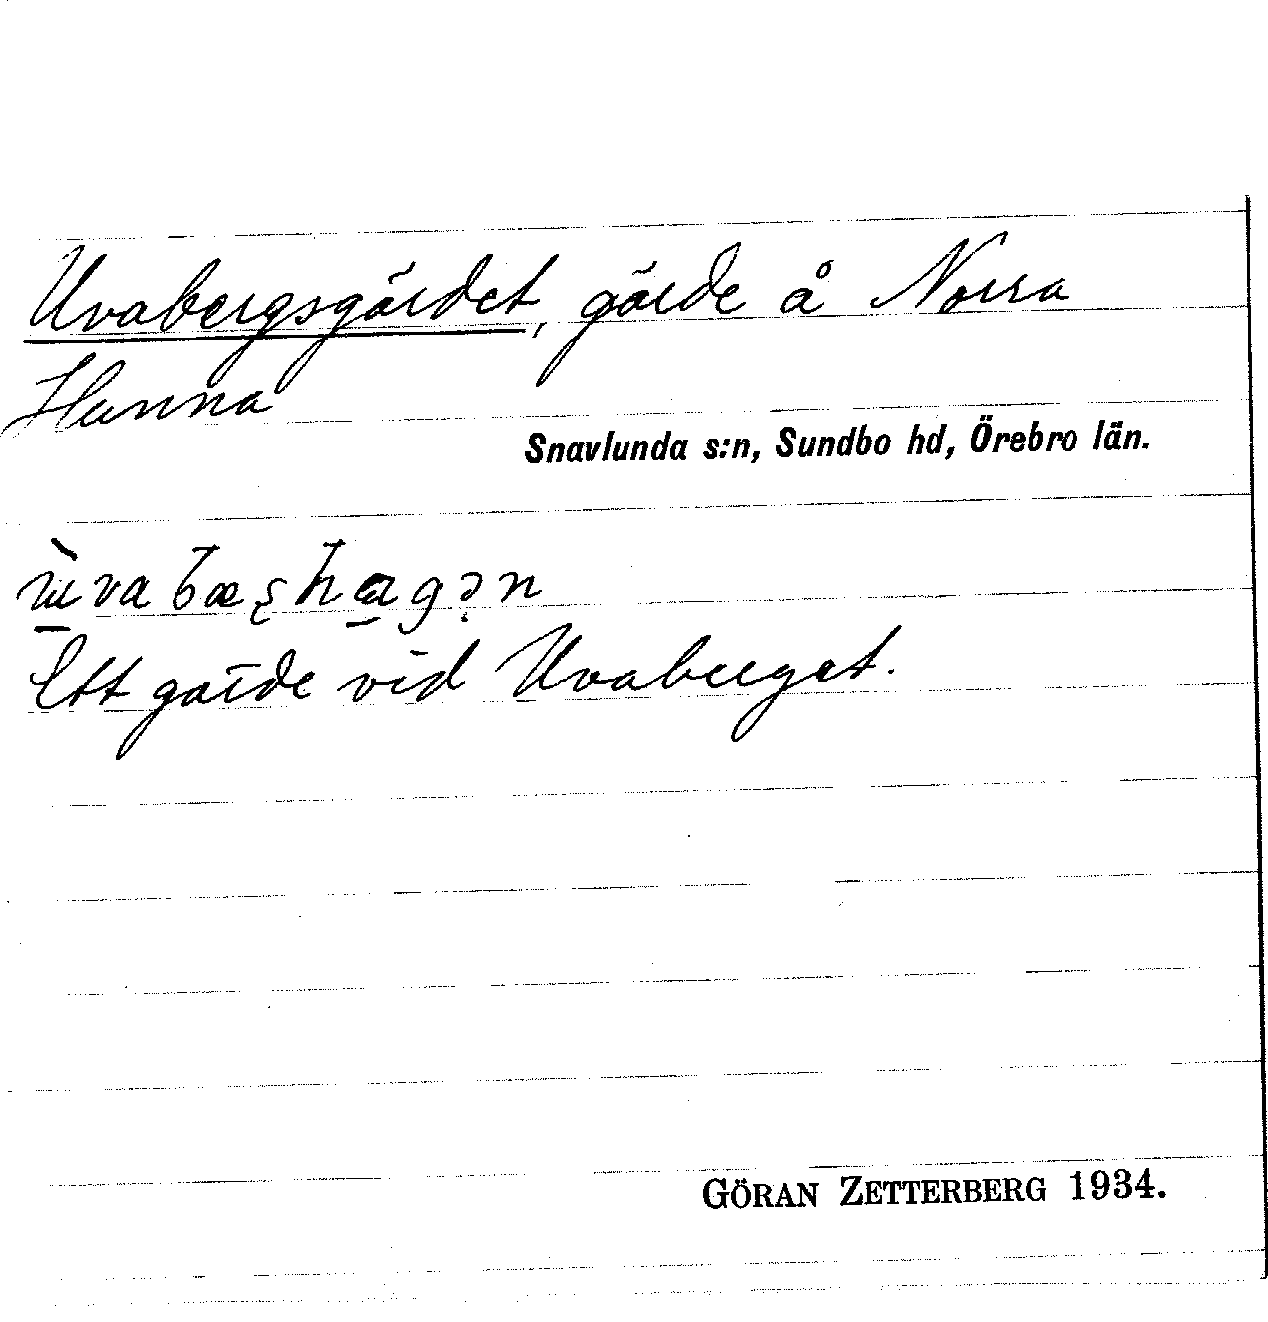 Uvabergsgärdet, gärde å Norra
Hunna
Snavlunda s:n, Sundbo hd, Örebro län.
Ett gärde vid Uvaberget.
GÖRAN ZETTERBERG 1934.